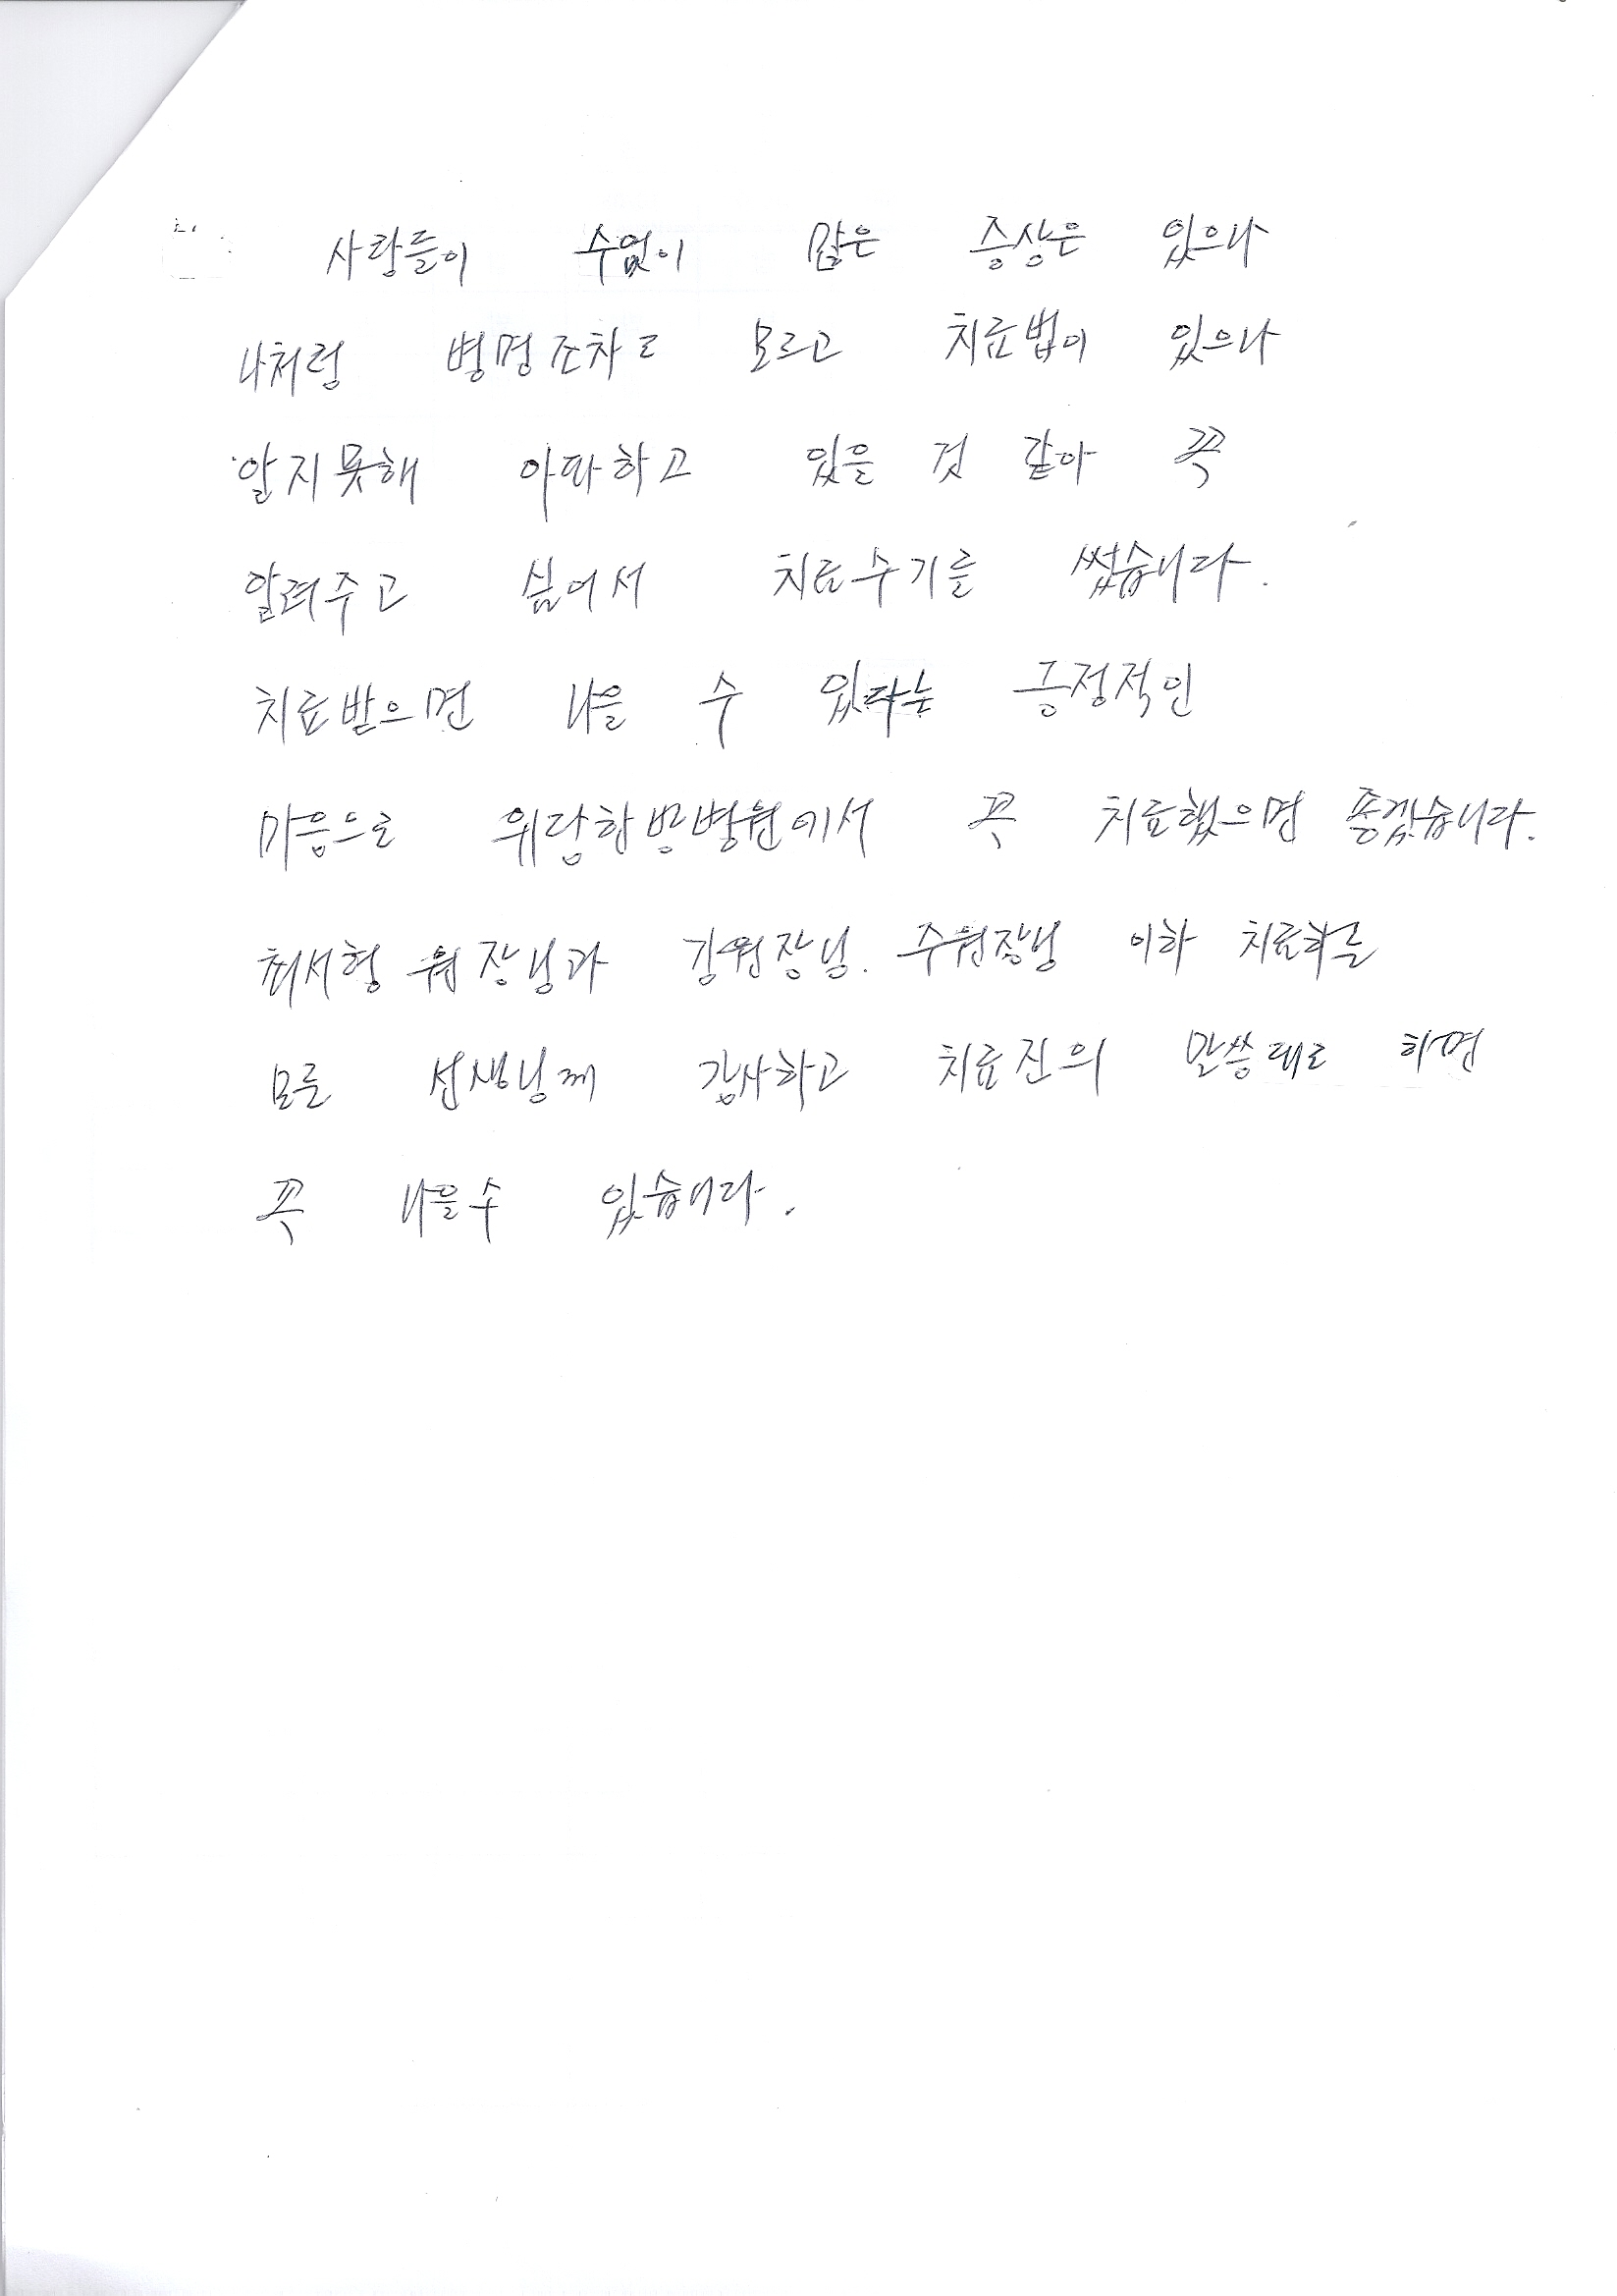 사람들이 수없이 많은 증상은 있으나
나처럼 병명조차도 모르고 치료법이 있으나
알지못해 아파하고 있을 것 같아 꼭
알려주고 싶어서 치료수기를 썼습니다.
치료받으면 나을 수 있다는 긍정적인
마음으로 위담한방병원에서 꼭 치료했으면 좋겠습니다.
최서형 원장님과 강원장님. 주원장님 이하 치료하는
모든 선생님께 감사하고 치료진의 말씀대로 하면
꼭 나을수 있습니다.